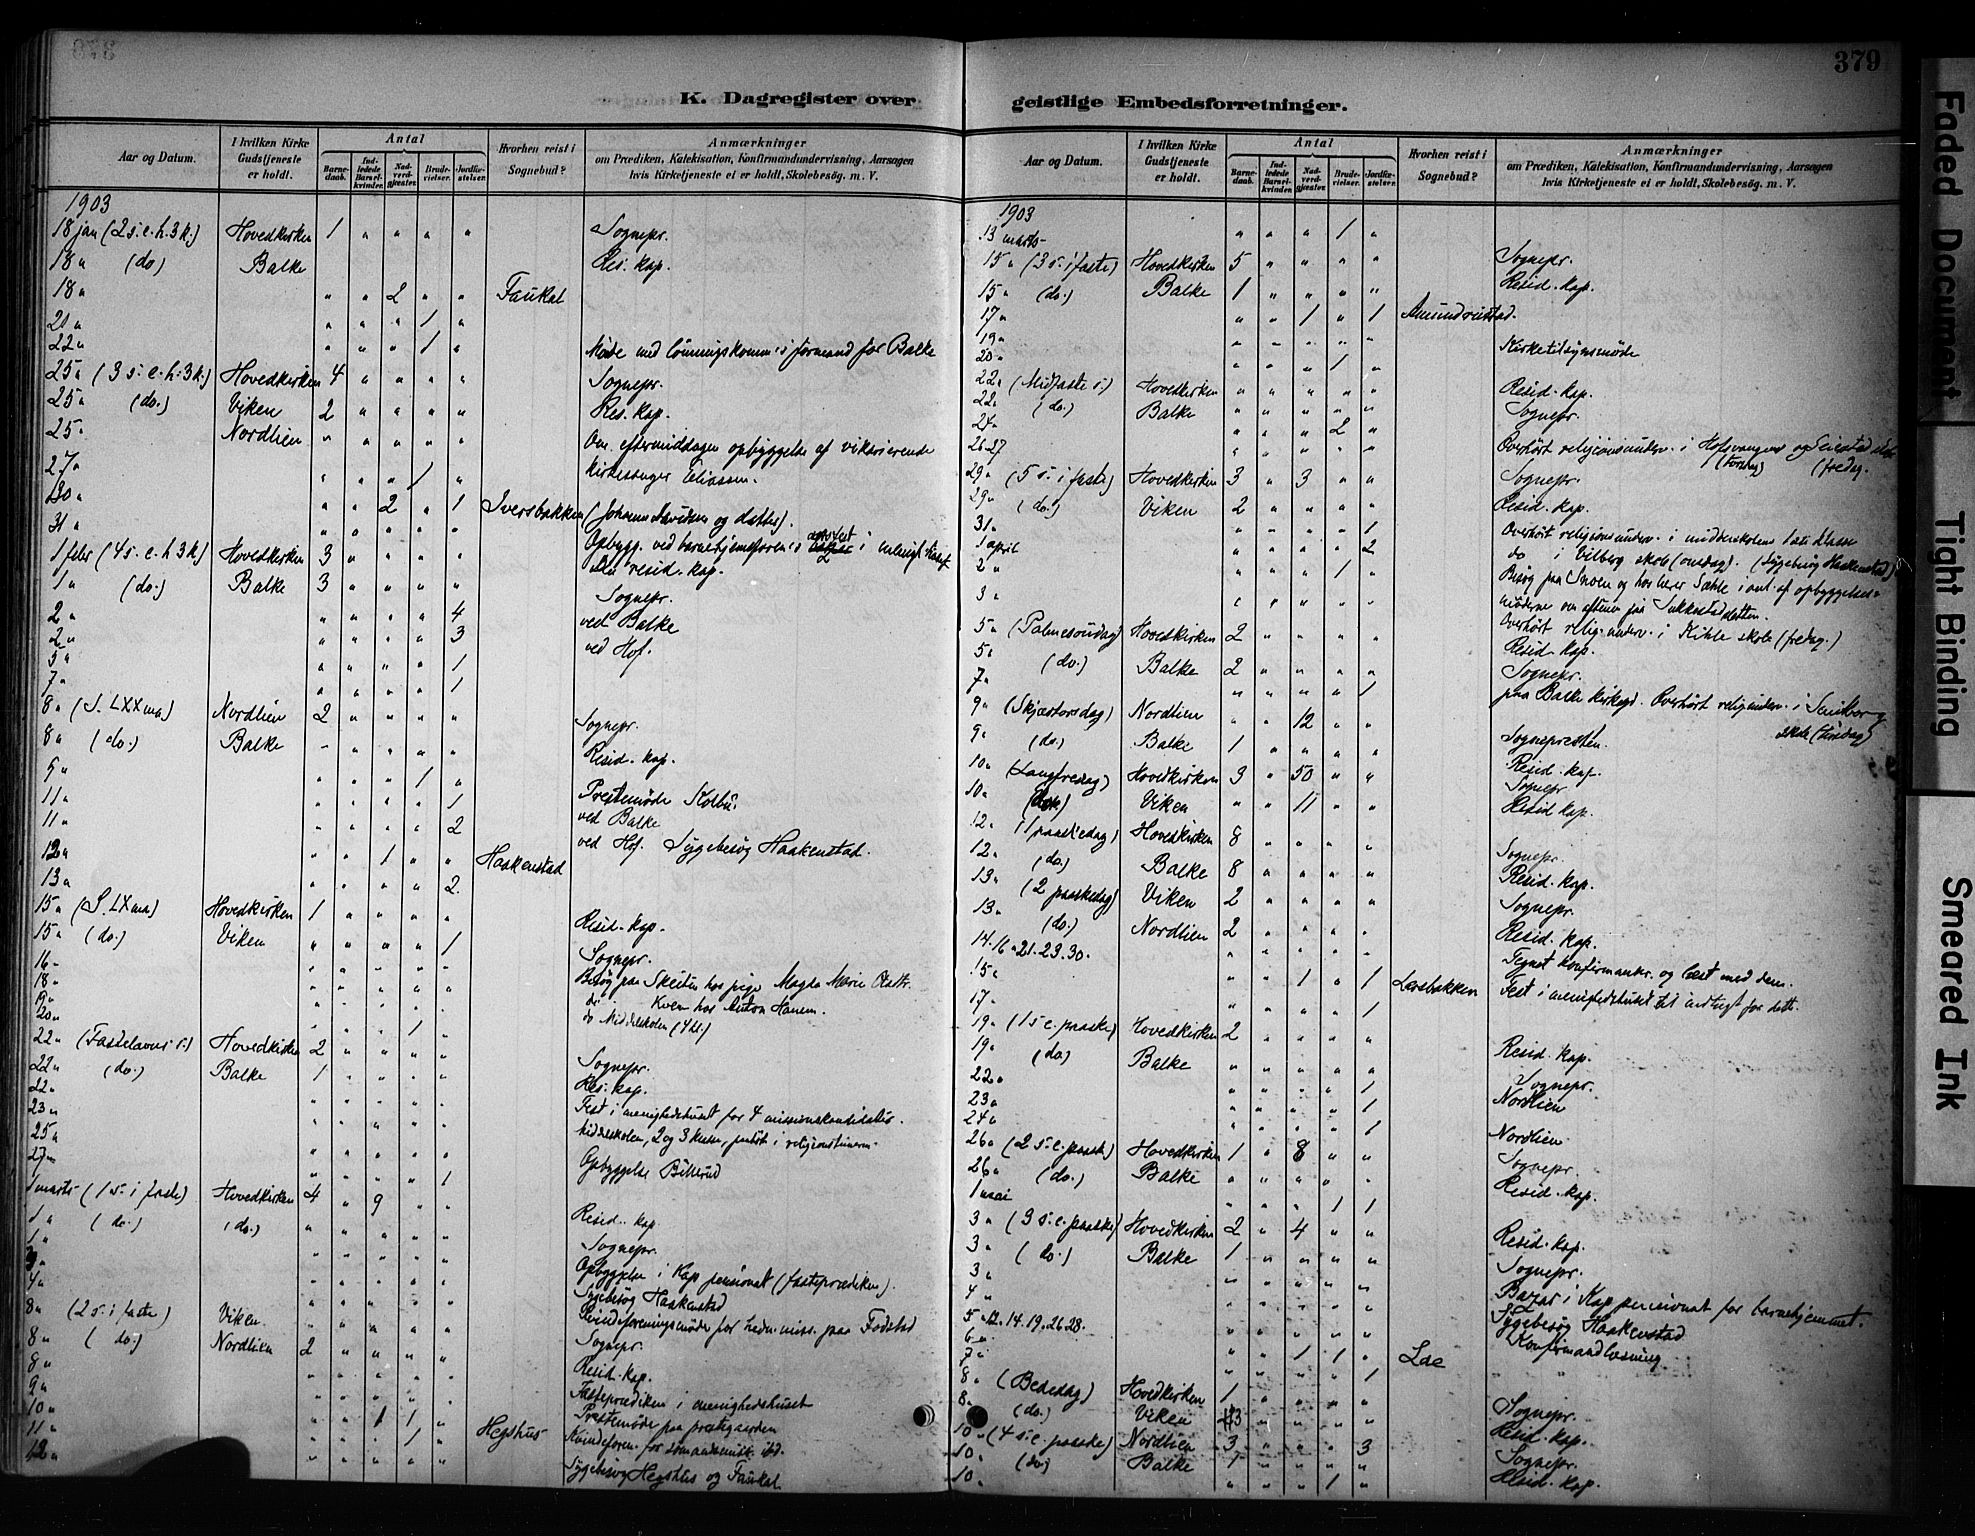 379
K. Dagregister over
Aar og Datum.
I hvilken Kirke Gudstjeneste er holdt.
Antal
Barnedaab.
Indledede Barselkvinder.
Nadverdgjester.
Brudevielser.
Jordfæstelser.
Hvorhen reist i Sognebud?
Anmærkninger
om Prædiken, Katekisation, Konfirmandundervisning, Aarsagen
hvis Kirketjeneste ei er holdt, Skolebesøg. m. V.
1903
18 jan (2 s. e. h. 3 k.) Hovedkirken 1 " " " " Sognepr.
18 " (do) Balke Res. kap.
18 " " " 2 " " Faukal
21 " " " " 1 "
22 " " " " 1 " Møde med lønningskomm:s formand for Balke
25 " (3 s. e. h. 3 k.) Hovedkirken 4 " " " " Sognepr.
25 " (do.) Viken 2 " " " " Res. kap.
25 " Nordlien " " " " " Om eftermiddagen opbyggelse af vikarierende
27 " " " " 1 " kirkesanger Eliassen.
30 " " " 2 " 1 Iversbakken (Johanne og datter).
31 " " " " " "
1 febr (4 s. e. h. 3 k) Hovedkirken 3 " " " " resid. kap.
1 " (do) Balke 3 " " " " Sognepr.
2 " " " " " 4 ved Balke
2 " " " " " 3 ved Hof.
5 " " " " " 1
7 " " " " " 1
8 " (S. LXXma) Nordlien 2 " " " " Sognepr.
8 " (do.) Balke " " " " " Resid. kap.
9 " " " " 1 " Prestemøde Kolbu.
11 " " " " " 1 ved Balke
11 " " " " " 2 ved Hof. Sygebesøg Haakenstad.
12 " " " 1 " " Haakenstad
13 " " " " " 2
15 " (S. LXma) Hovedkirken 1 " " " " Resid. kap.
15 " (do.) Viken " " " " 1 Sognepr.
16 " " " " " "
18 " " " " " " Besøg paa Skeitun hos pige Magda Marie
19 " " " " " " do Kven hos Anton Hansen.
20 " " " " 1 " do Middelskolen (4 kl.)
22 " (Fastelavns s.) Hovedkirken 2 " " " " Sognepr.
22 " (do.) Balke 1 " " " " Res. kap.
22 " " " " " " Fest i menighedshuset for 4 missionskandidater.
23 " " " " " "
25 " " " " " " Middelskolen, 2 og 3 klasse, i religionstimerne
27 " " " " " 1 Opbyggelse Billerud
1 marts (1 s. i faste) Hovedkirken 4 " 9 " " Resid. kap
1 " (do.) (do.) " " " " " Sognepr.
1 " " " " " " Opbyggelse i Kap pensionat (fasteprædiken).
3 " " " " " " Sygebesøg Haakenstad
4 " " " " " " Kvindeforeningsmøde for hedn. miss. paa Fodstad
8 " (2 s. i faste) Viken " " " " " Sognepr.
8 " (do.) Nordlien 2 " " " " Resid. kap.
8 " " " " " " Fasteprædiken i menighedshuset
9 " " " " " " Prestemøde paa prestegaarden
10 " " " 1 1 " Hegshus Kvindeforen. for sømandsmiss. ibd.
11 " " " " 1 " Sygebesøg Hegshus og Faukal
12 " " " " " "
geistlige Embedsforretninger.
Aar og Datum.
I hvilken Kirke Gudstjeneste er holdt.
Antal
Barnedaab.
Indledede Barselkvinder.
Nadverdgjester.
Brudevielser.
Jordfæstelser.
Hvorhen reist i Sognebud?
Anmærkninger
om Prædiken, Katekisation, Konfirmandundervisning, Aarsagen
hvis Kirketjeneste ei er holdt, Skolebesøg. m. V.
1903
13 marts " " " 1 "
15 " (3 s. i faste) Hovedkirken 5 " " " " Sognepr.
15 " (do.) Balke 1 " " " " Resid. kap.
17 " " " 1 " 1 Amundrustad.
19 " " " " " " Kirketilsynsmøde
20 " " " " 1 "
22 " (Midfaste s.) Hovedkirken " " " " " Resid. kap.
22 " (do.) Balke " " " " " Sognepr.
24 " " " " 2 "
26 27 " " " " " Overhørt religionsunderv. i Hofsvangen og Seiestad skole
(torsdag) (fredag.
29 " (5 s. i faste) Hovedkirken 3 " 3 " " Sognepr.
29 " (do.) Viken 2 " " " " Resid. kap.
31 " " " " " 1 Overhørt religionsunderv. i middelskolens 1ste klasse
1 april " " " " 2 do i Vilberg skole (onsdag). (Sygebesøg Haakenstad)
2 " " " " 1 " Besøg paa og hos lærer i anl. af opbyggelses-
3 " " " " " " møderne om aftenen paa
Overhørt relig. underv. i Kihle skole (fredag.)
5 " (Palmesøndag) Hovedkirken 2 " " " " Resid. kap.
5 " (do.) Balke 2 " " " " Sognepr.
7 " " " " " 1 paa Balke kirkegd. Overhørt relig. underv. i
skole (tirsdag)
9 " (Skjærtorsdag) Nordlien " " 12 " " Sognepresten.
9 " (do.) Balke 1 " " " " Resid. kap.
10 " (Langfredag) Hovedkirken 3 " 50 " " Sognepr.
10 " Viken " " 11 " " Resid kap.
12 " (1 paaskedag) Hovedkirken 8 " " " " Sognepr.
12 " (do.) Balke 8 " " " " Resid. kap.
13 " (2 paaskedag) Viken 2 " " " " Sognepr.
13 " (do.) Nordlien 2 " " " " Resid. Kap.
14. 16. 21. 23. 30. " " " " " Tegnet konfirmander. og læst med dem.
15 " " " 1 " 1 Fest i menighedshuset til indtægt for dette.
17 " " " " " 1
19 " (1 s e. paaske) Hovedkirken 2 " " " " Resid. kap.
19 " (do) Balke " " " " " Sognepr.
22 " " " " " 1 Nordlien
23 " " " " " 1
24 " " " " " 1 Nordlien
26 " (2 s. e. paaske) Hovedkirken 1 " 8 " " Sognepr.
26 " (do.) Balke " " " " " Resid. kap.
1 mai " " " 1 1
3 " (3 s. e. paaske) Hovedkirken 2 " 4 " " Resid. kap.
3 " (do.) Balke 1 " " " " Sognepr.
3 " " " " " " Bazar i Kap pensionat for barnehjemmet.
4 " " " " " " Sygebesøg Haakenstad
5. 12. 14. 19. 26 28. Konfirmandlæsning
6 " " " 1 1 " Lae
7 " " " " " 1
8 " (Bededag) Hovedkirken 1 " " " " Sognepr.
8 " (do.) Viken 3 " " " " Resid. kap.
10 " (4 s. e. paaske) Nordlien 3 " " " 3 Sognepr.
10 " (do) Balke 1 " " " " Resid. kap.
10 " " " " 1 "
Faded Document
Tight Binding
Smeared Ink